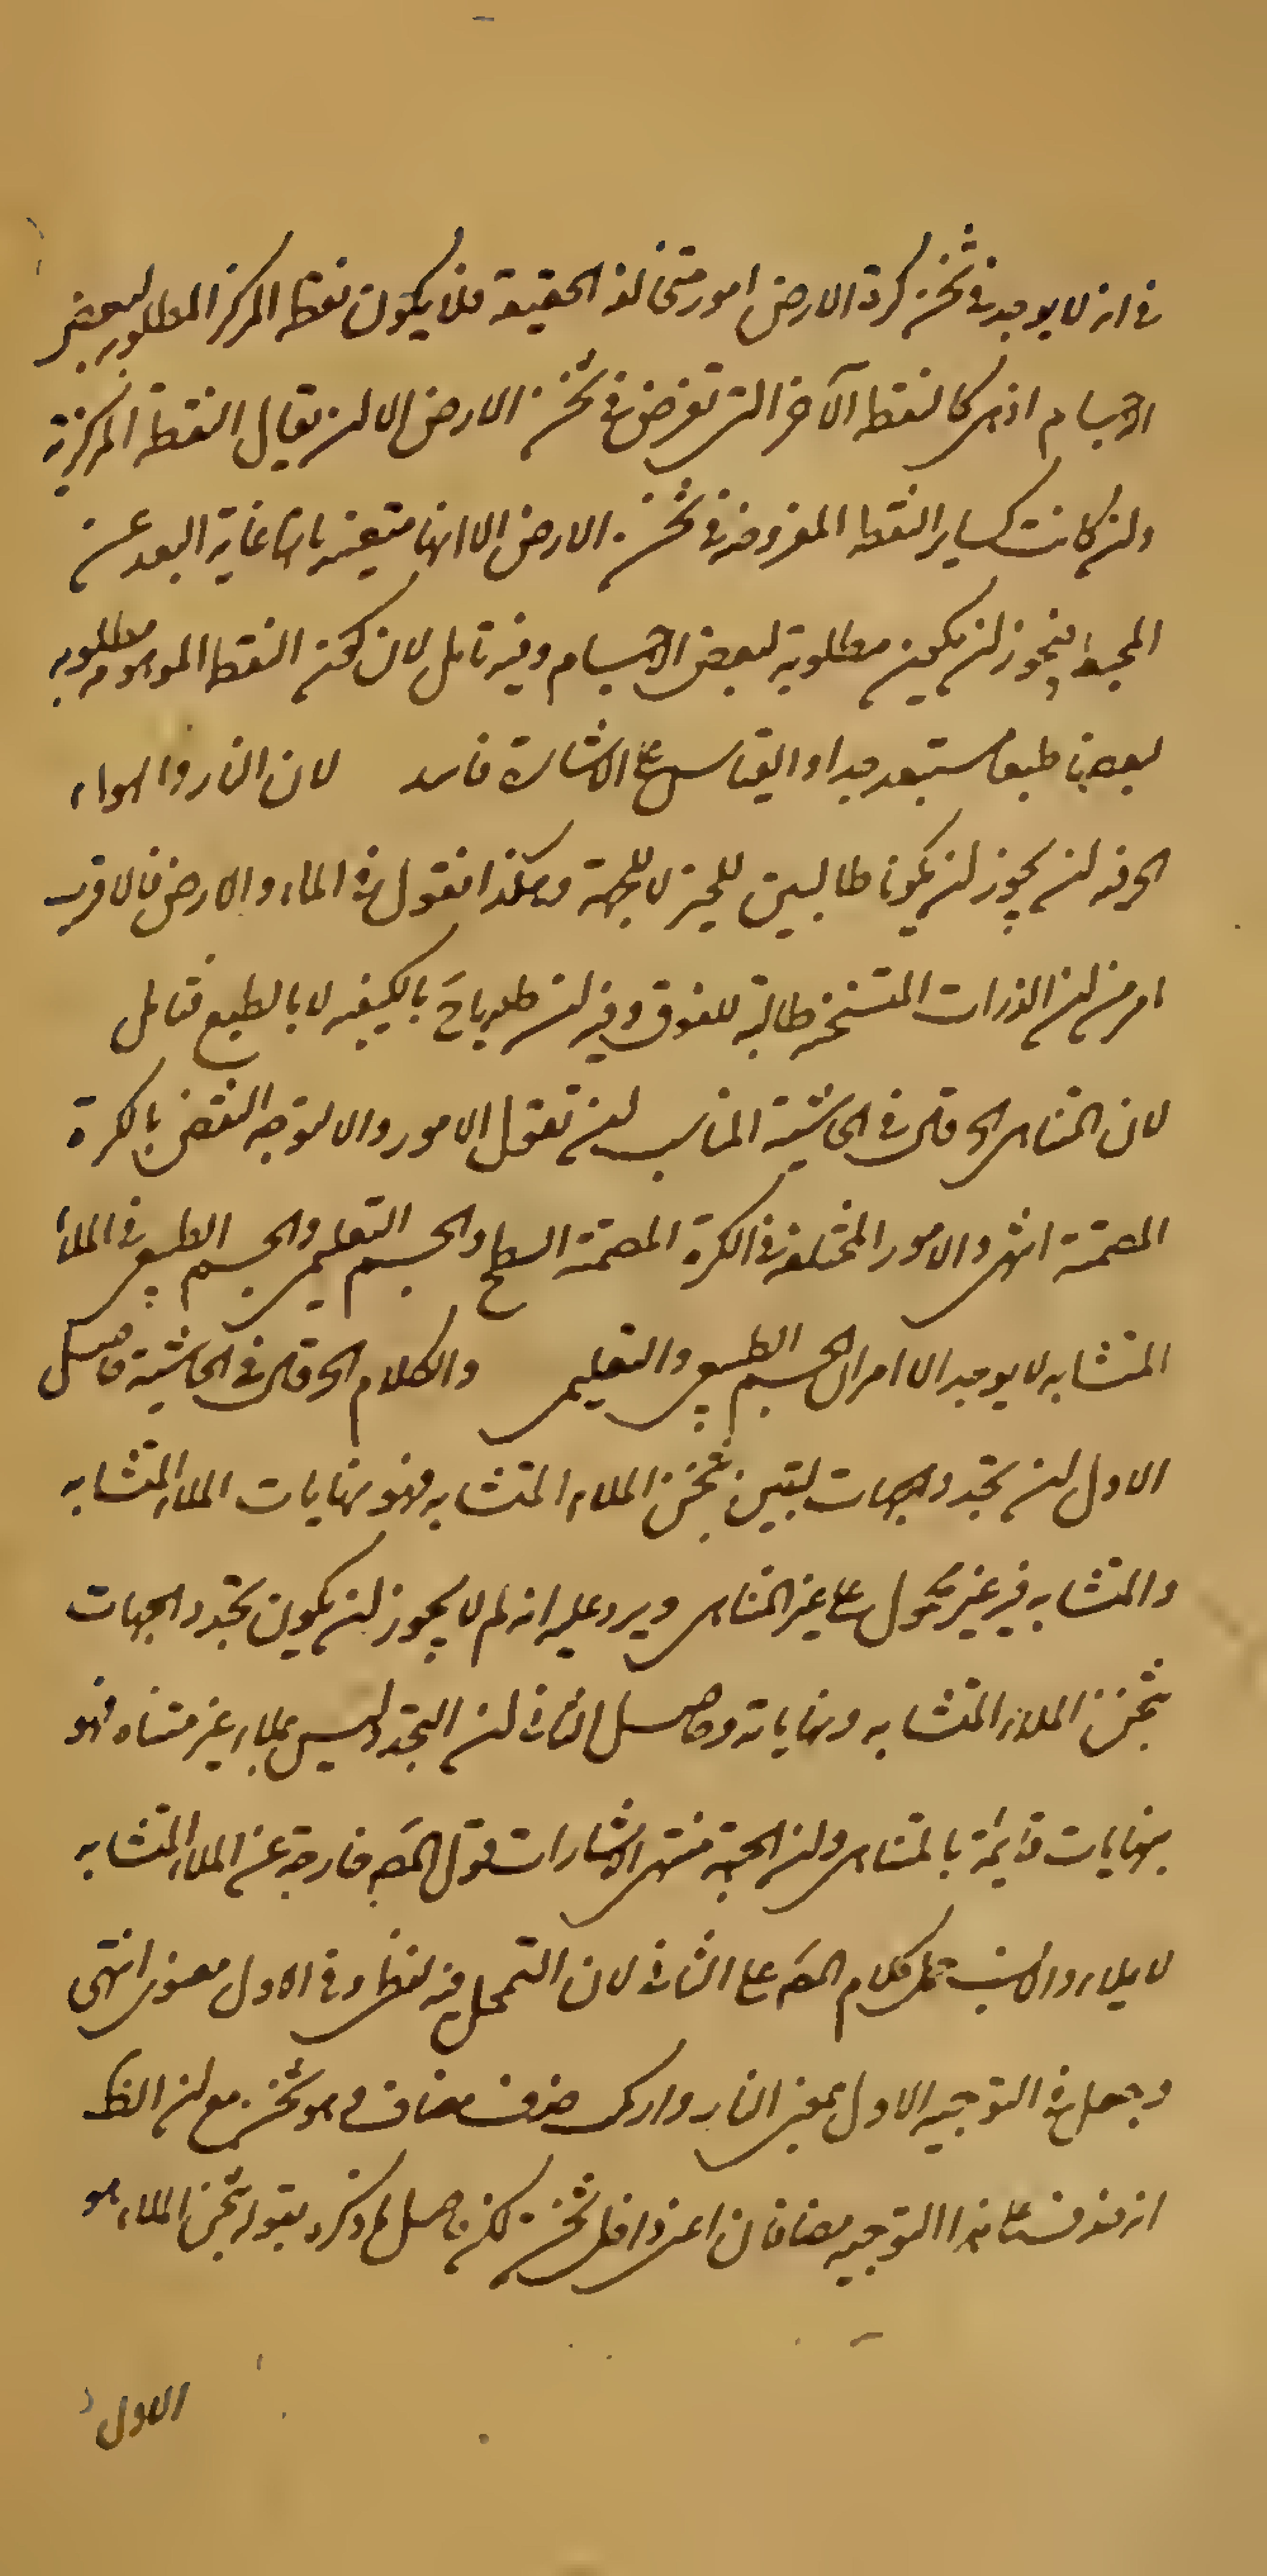 في انه لا يوجد في ثخن كرة الارض امور متخالفة الحقيقة فلا يكون نقطة المركز المطلوبة لبعض
الاجسام اذ هي كالنقطة الآخر التي تفرض في ثخن الارض الا ان يقال النقطة المركزية
وان كانت كساير النقط المفروضة في ثخن الارض الا انها متعينة بانها غاية البعد عن
المحيط فيجوز ان يكون مطلوبة لبعض الاجسام وفيه تامل لان كون النقطة الموهومة مطلوبة
لبعضها طبعا مستبعد جدا والقياس على الاشارة فاسد لان النار والهواء
الخ فيه ان يجوز ان يكونا طالبين للحيز لا للجهة وهكذا نقول في الماء والارض فالاقرب
ما مر من ان الذرات المتسخنة طالبة للفوق وفيه ان طلبها ح بالكيفية لا بالطبع فتامل
لان المتناهي الخ قال في الحاشية المناسب ان تقول الامور والا لتوجه النقض بالكرة
المصمتة انتهى والامور المختلفة في الكرة المصمتة السطح والجسم التعليمي والجسم الطبيعي في الملأ
المتشابه لا يوجد الا امران الجسم الطبيعي والتعليمي والكلام الخ قال في الحاشية حاصل
الاول ان تحدد الجهات ليس بثخن الملاء المتشابه فهو بنهايات الملاء المتشابه
والمتشابه فيه غير محمول على غير المتناهي ويرد عليه انه لم لا يجوز ان يكون تحدد الجهات
بثخن الملاء المتشابه ونهاياته وحاصل الثاني ان التحدد ليس بملاء غير متناه فهو
بنهايات قائمة بالمتناهي وان الجهة منتهى الاشارات فقول المصه خارجة عن الملاء المتشابه
لا يلايم والانسب حمل كلام المصه على الثاني لان التمحل فيه لفظي وفي الاول معنوي انتهى
وجعل في التوجيه الاول بمعنى الباء وارك حذف مضاف وهو ثخن مع ان الظ
انه حذف على هذا التوجيه مضافان اعني داخل ثخن لكن حاصل ما ذكره بقوله بثخن الملاء هو
الاول